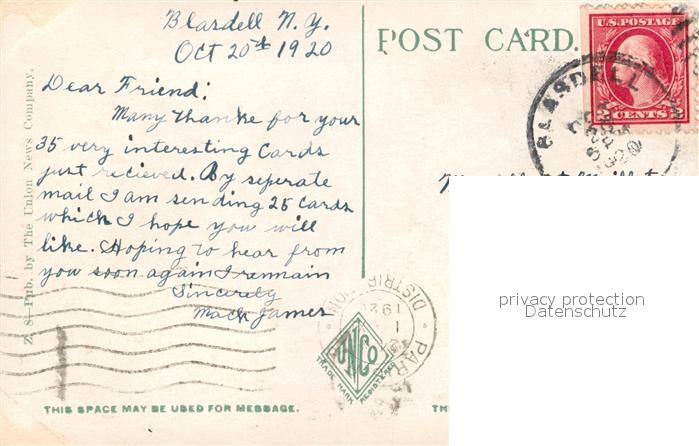 Blasdell N.Y.
Oct 20th 1920
Dear Friend:
Many thanks for your
35 very interesting Cards
just recieved. By seperate
mail I am sending 25 Cards
which I hope you will
like. Hoping to hear from
you soon again I remain
Sincerely
Mack James
Z. S—Pub. by The Union News Company.
POST CARD.
U.S. POSTAGE
2 CENTS 2
BLASDELL
DISTRIBUTION
1920
PAR
UNCO
TRADE MARK
REGISTERED
THIS SPACE MAY BE USED FOR MESSAGE.
TH
privacy protection
Datenschutz